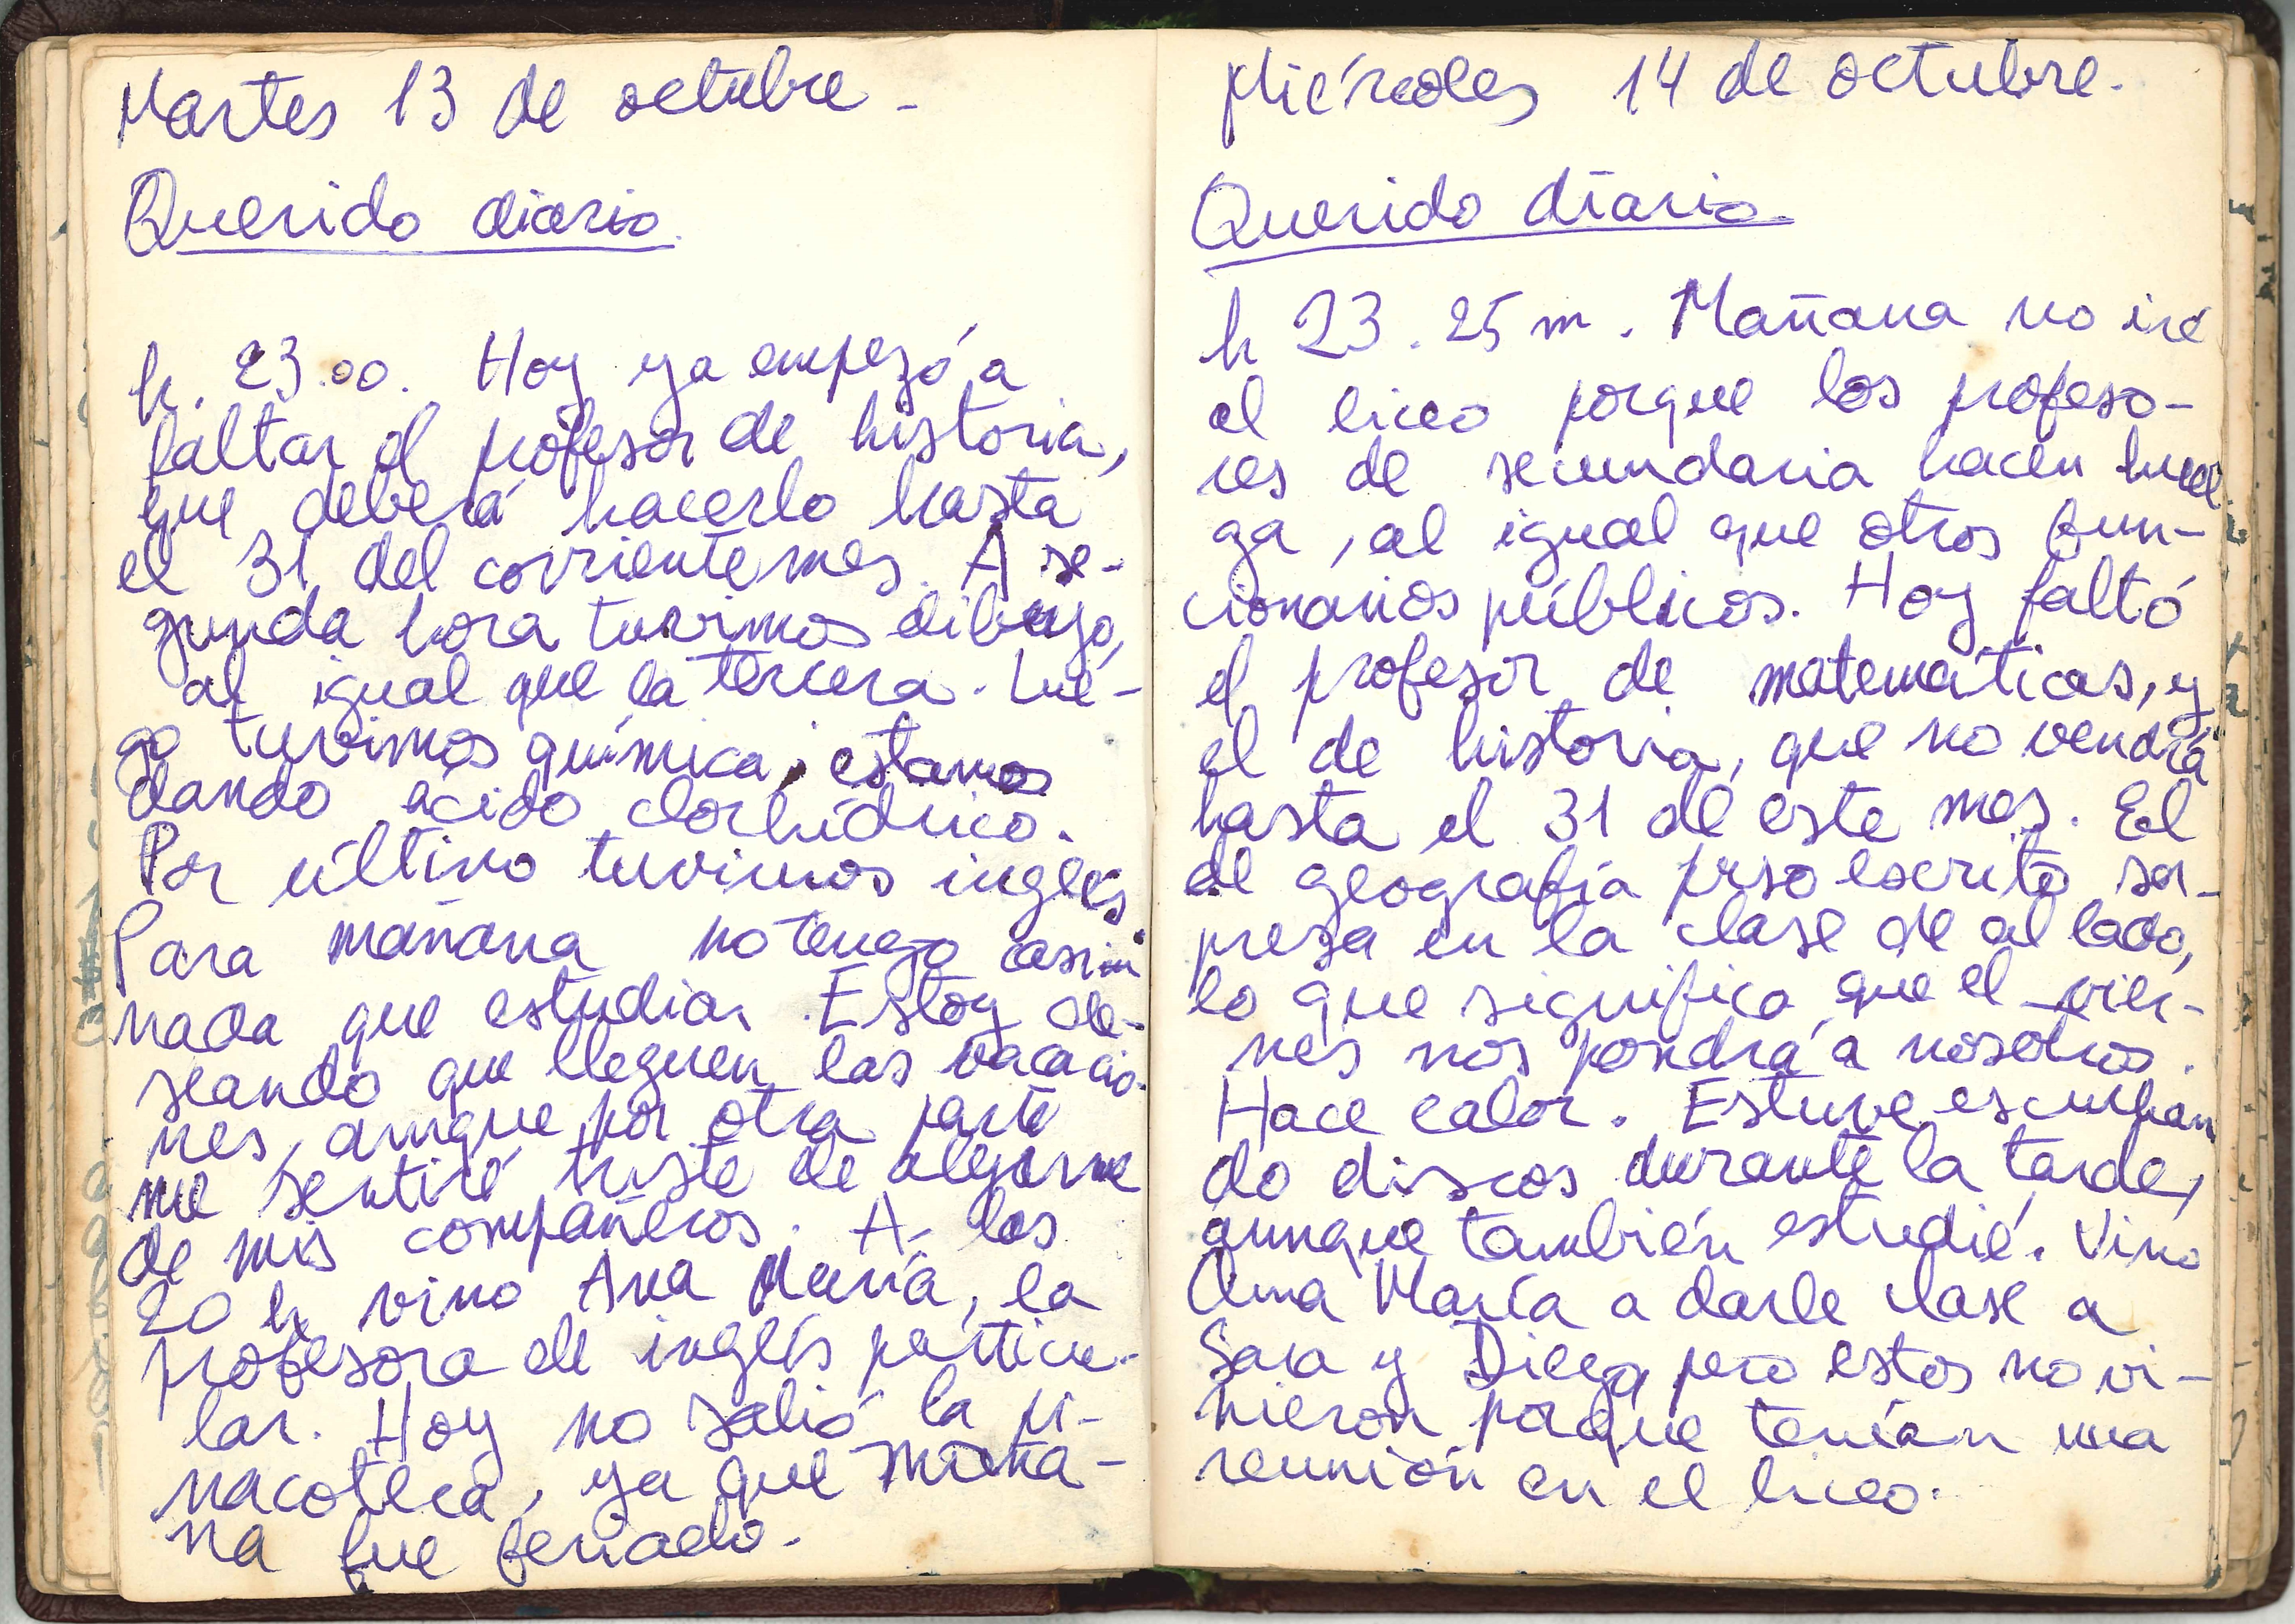 Martes 13 de octubre -
Querido diario.
h. 23.00. Hoy ya empezó a
faltar el profesor de historia,
que deberá hacerlo hasta
el 31 del corriente mes. A se-
gunda hora tuvimos dibujo,
al igual que la tercera. Lue-
go tuvimos química, estamos
dando ácido clorhídrico.
Por último tuvimos inglés
Para mañana no tengo casi
nada que estudiar. Estoy de-
seando que lleguen las vacacio-
nes, aunque por otra parte
me sentiré triste de alejarme
de mis compañeros. A las
20 h vino Ana María, la
profesora de inglés particu-
lar. Hoy no salió la pi-
nacoteca, ya que
na fue feriado.
Miércoles 14 de octubre.
Querido diario.
h 23.25 m. Mañana no iré
al liceo porque los profeso-
res de secundaria hacen huel
ga, al igual que otros fun-
cionarios públicos. Hoy faltó
el profesor de matemáticas, y
el de historia, que no vendrá
hasta el 31 de este mes. El
de geografía puso escrito sor-
presa en la clase de al lado,
lo que significa que el vier-
nes nos pondrá a nosotros.
Hace calor. Estuve escuchan
do discos durante la tarde,
aunque también estudié. Vino
Ana María a darle clase a
Sara y Diego, pero estos no vi-
nieron porque tenían una
reunión en el liceo.